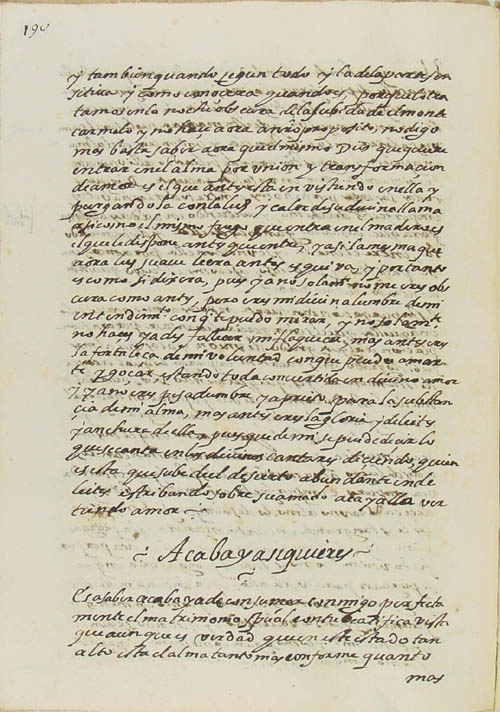 190
y tambien quando segun todo y la de la parte sen
sitiua y como conocera quando es, porque lo tra
tamos en la noche obscura de la subida de el monte
carmelo y no hace aora a nro proposito, no digo
mas basta saber aora que el mismo Dios que quiere
entrar en el alma por union y transformacion
de amor es el que antes esta inuistiendo en ella y
purgandola con la luz y calor de su diuina llama
assi como el mismo fuego que entra en el madero es
el que le dispone antes que entre, y asi la mesma que
aora les suaue le era antes esquiua, y por tanto
es como si dixera, pues ya no solam no me eres obs
cura como antes, pero eres mi diuina lumbre de mi
entendimto con q te puedo mirar, y no solamte
no haces ya desfallecer mi flaqueza, mas antes eres
la fortaleca de mi voluntad con que puedo amar
te y gocar estando toda conuertida en diuino amor
y ya no eres pesadumbre y aprieto para la substan
cia de mi alma, mas antes eres la gloria y deleites
y anchura de ella, pues que de mi se puede decir lo
que se canta en los diuinos cantares diciendo, quien
es esta que sube de el desierto abundante en de
leites estribando sobre su amado aca y alla ver
tiendo amor
Acaba ya si quieres
Es a saber acaba ya de consumar conmigo perfecta
mente el matrimonio spũal con tu beatifica vista
que aunque es verdad que en este estado tan
alto esta el alma tanto mas conforme quanto
mas